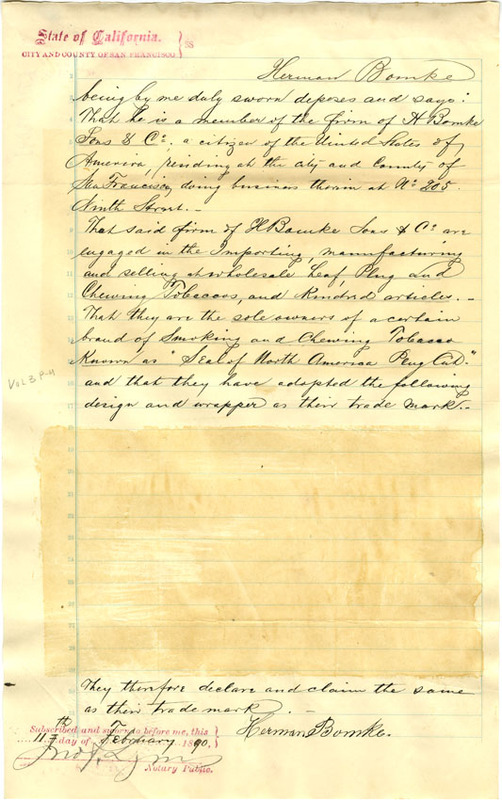 State of California. } SS
CITY AND COUNTY OF SAN FRANCISCO
Herman Bomke
being by me duly sworn deposes and says:
That he is a member of the firm of H Bomke
Sons & Co, a citizen of the United States of
America, residing at the city and County of
San Francisco, doing business therein at No 205
Ninth Street.
That said firm of H Bomke Sons & Co are
engaged in the Importing, manufacturing
and selling at wholesale Leaf, Plug and
Chewing Tobaccos, and Kindred articles.
That they are the sole owners of a certain
brand of Smoking and Chewing Tobacco
Known as "Seal of North America Plug Cut"
and that they have adopted the following
design and wrapper as their trade mark.
Vol 3 P. 11
They therefore declare and claim the same
as their trade mark.
Subscribed and sworn to before me, this
11th day of February 1890.
Herman Bomke.
Notary Public.